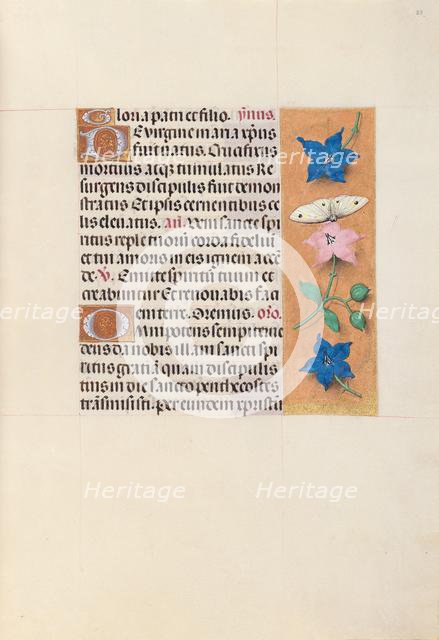 Gloria patri et filio. ymus.
De virgine maria xp̄us
fuit natus. Crucifixus
mortuus atq; tumulatus Re
surgens discipulis fuit demon
stratus Et ipsis cernentibus ce
lis eleuatus. an̄. Veni sancte spi
ritus reple tuorū corda fideliū et
tui amoris in eis ignem accē
de. V. Emitte spiritū tuum et
creabuntur Et renouabis fa
em terre. Oremus. oro.
Omnipotens sempiterne
deus da nobis illam sancti spi
ritus gratiā quam discipulis
tuis in die sancto penthecostes
trāsmisisti. Per eundem xpristū
Heritage
Heritage
Heritage
Heritage
Heritage
Heritage
Heritage